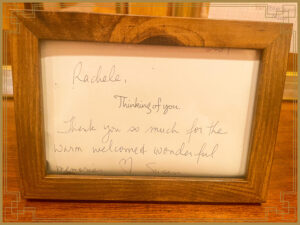 Rachele,
Thinking of you
Thank you so much for the
warm welcome & wonderful
memories